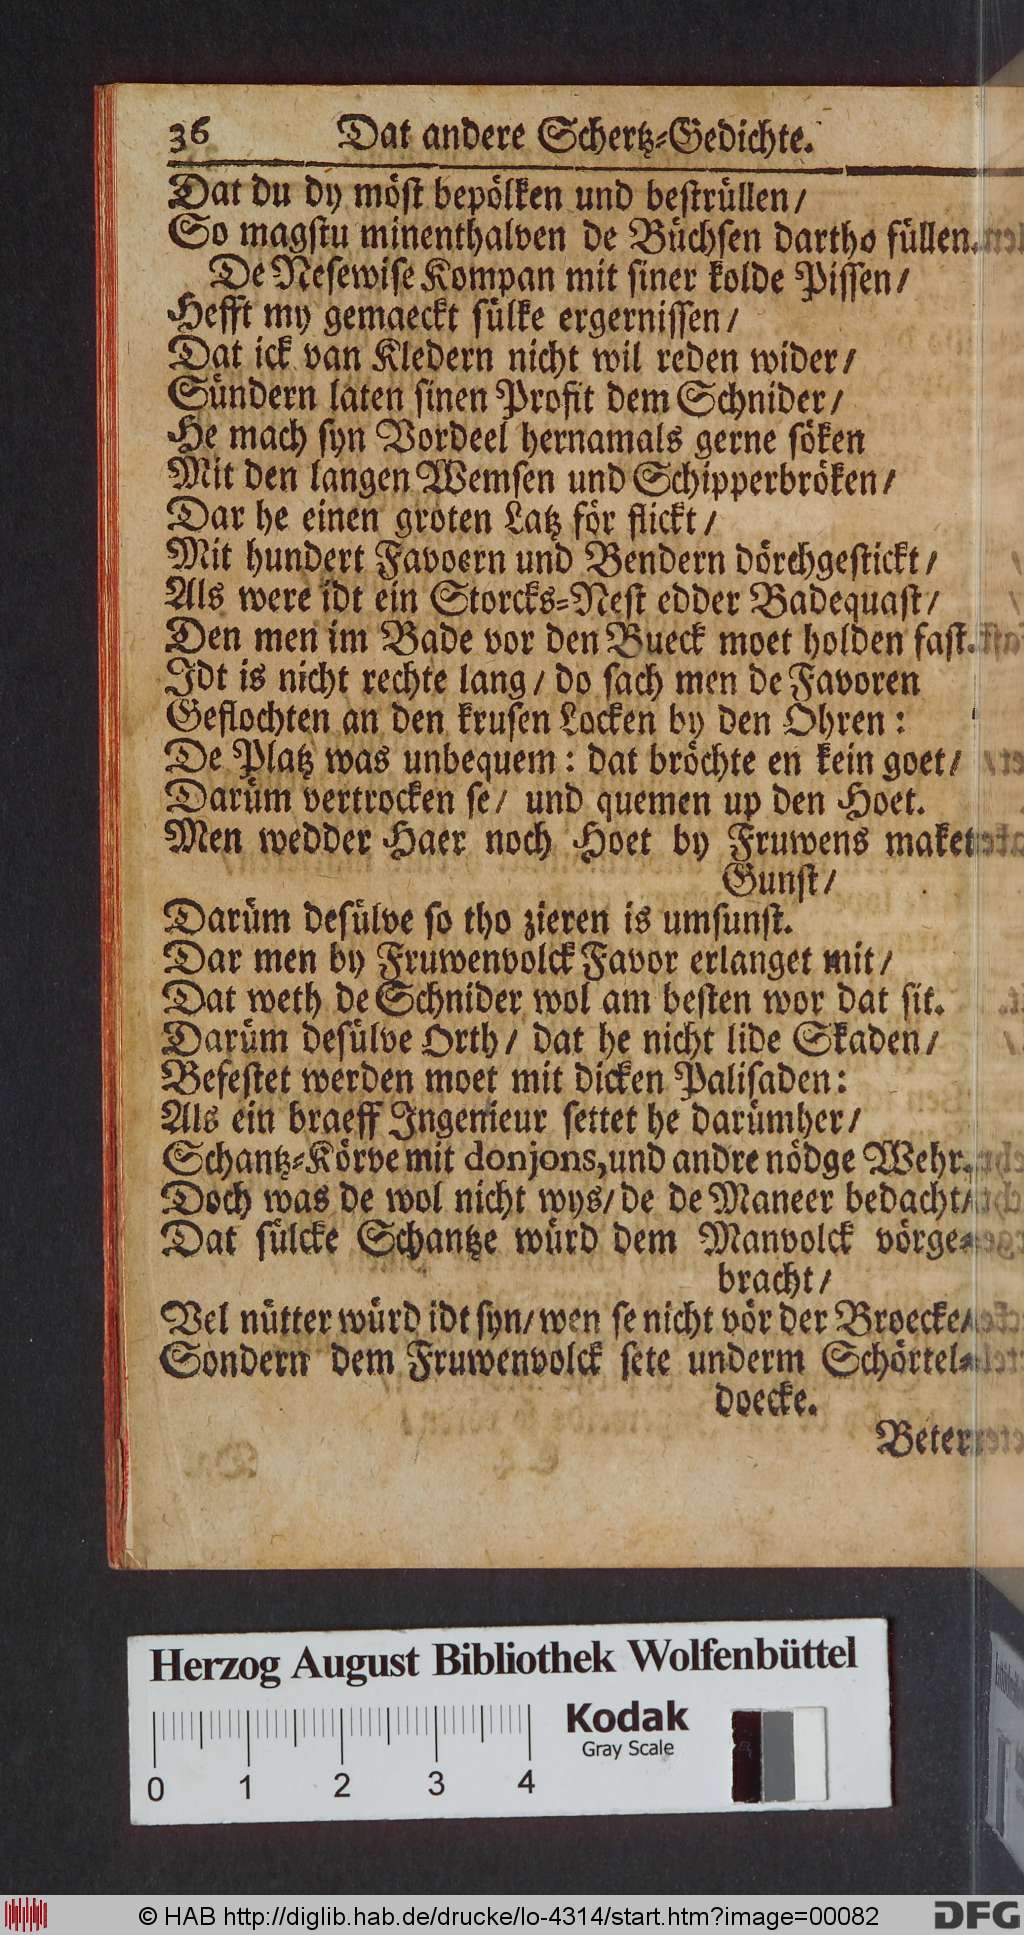 36 Dat andere Schertz-Gedichte.
Dat du dy möst bepölken und bestrüllen/
So magstu minenthalven de Büchsen dartho füllen.
De Nesewise Kompan mit siner kolde Pissen/
Hefft my gemaeckt sülke ergernissen/
Dat ick van Kledern nicht wil reden wider/
Sündern laten sinen Profit dem Schnider/
He mach syn Vordeel hernamals gerne söken
Mit den langen Wemsen und Schipperbröken/
Dar he einen groten Latz för flickt/
Mit hundert Favoern und Bendern dörchgestickt/
Als were idt ein Storcks-Nest edder Badequast/
Den men im Bade vor den Bueck moet holden fast.
Idt is nicht rechte lang/ do sach men de Favoren
Geflochten an den krusen Locken by den Ohren:
De Platz was unbequem: dat bröchte en kein goet/
Darüm vertrocken se/ und quemen up den Hoet.
Men wedder Haer noch Hoet by Fruwens maket
Gunst/
Darüm desülve so tho zieren is umsunst.
Dar men by Fruwenvolck Favor erlanget mit/
Dat weth de Schnider wol am besten wor dat sit.
Darüm desülve Orth/ dat he nicht lide Skaden/
Befestet werden moet mit dicken Palisaden:
Als ein braeff Ingenieur settet he darümher/
Schantz-Körve mit donjons, und andre nödge Wehr.
Doch was de wol nicht wys/ de de Maneer bedacht/
Dat sülcke Schantze würd dem Manvolck vörge-
bracht/
Vel nütter würd idt syn/ wen se nicht vör der Broecke/
Sondern dem Fruwenvolck sete underm Schörtel-
doecke.
Beter
Herzog August Bibliothek Wolfenbüttel
Kodak
Gray Scale
0 1 2 3 4
© HAB http://diglib.hab.de/drucke/lo-4314/start.htm?image=00082
DFG